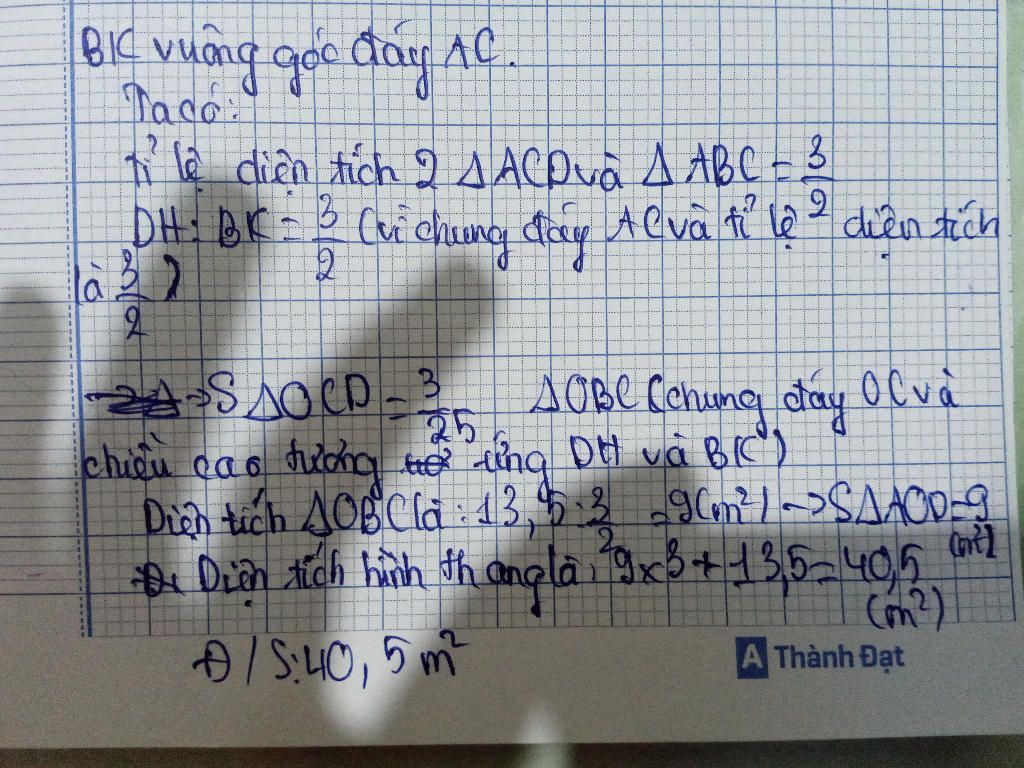 BK vuông góc đáy AC.
Ta có:
tỉ lệ diện tích 2 Δ ACD và Δ ABC = 3/2
DH : BK = 3/2 (vì chung đáy AC và tỉ lệ diện tích
là 3/2)
→ S ΔOCD = 3/2 ΔOBC (chung đáy OC và
chiều cao tương ứng DH và BK)
Diện tích ΔOBC là : 13,5 : 3/2 = 9(m²) → S ΔAOD = 9 (m²)
Diện tích hình thang là : 9 x 3 + 13,5 = 40,5 (m²)
Đ/S: 40,5 m²
A Thành Đạt